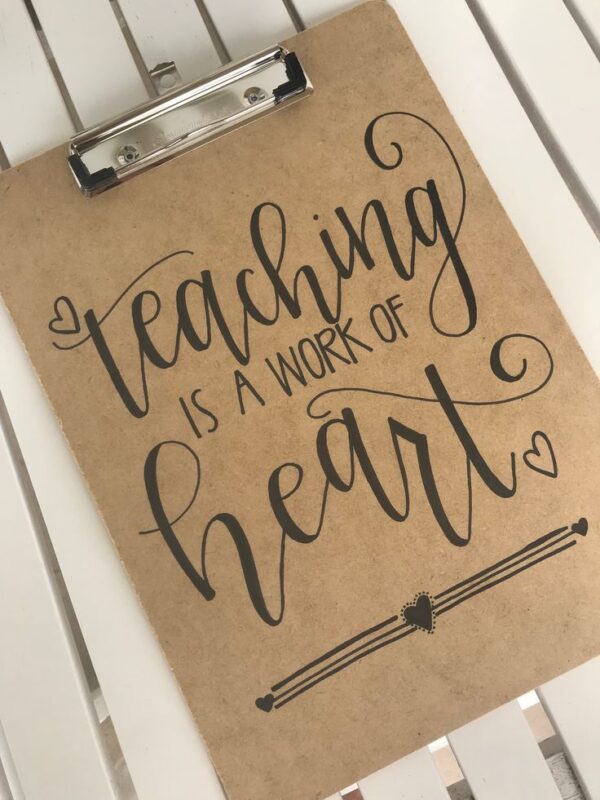 teaching
IS A WORK OF
heart